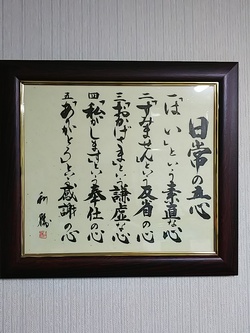 日常の五心
一「はい」という素直な心
二「すみません」という反省の心
三「おかげさま」という謙虚な心
四「私がします」という奉仕の心
五「ありがとう」という感謝の心